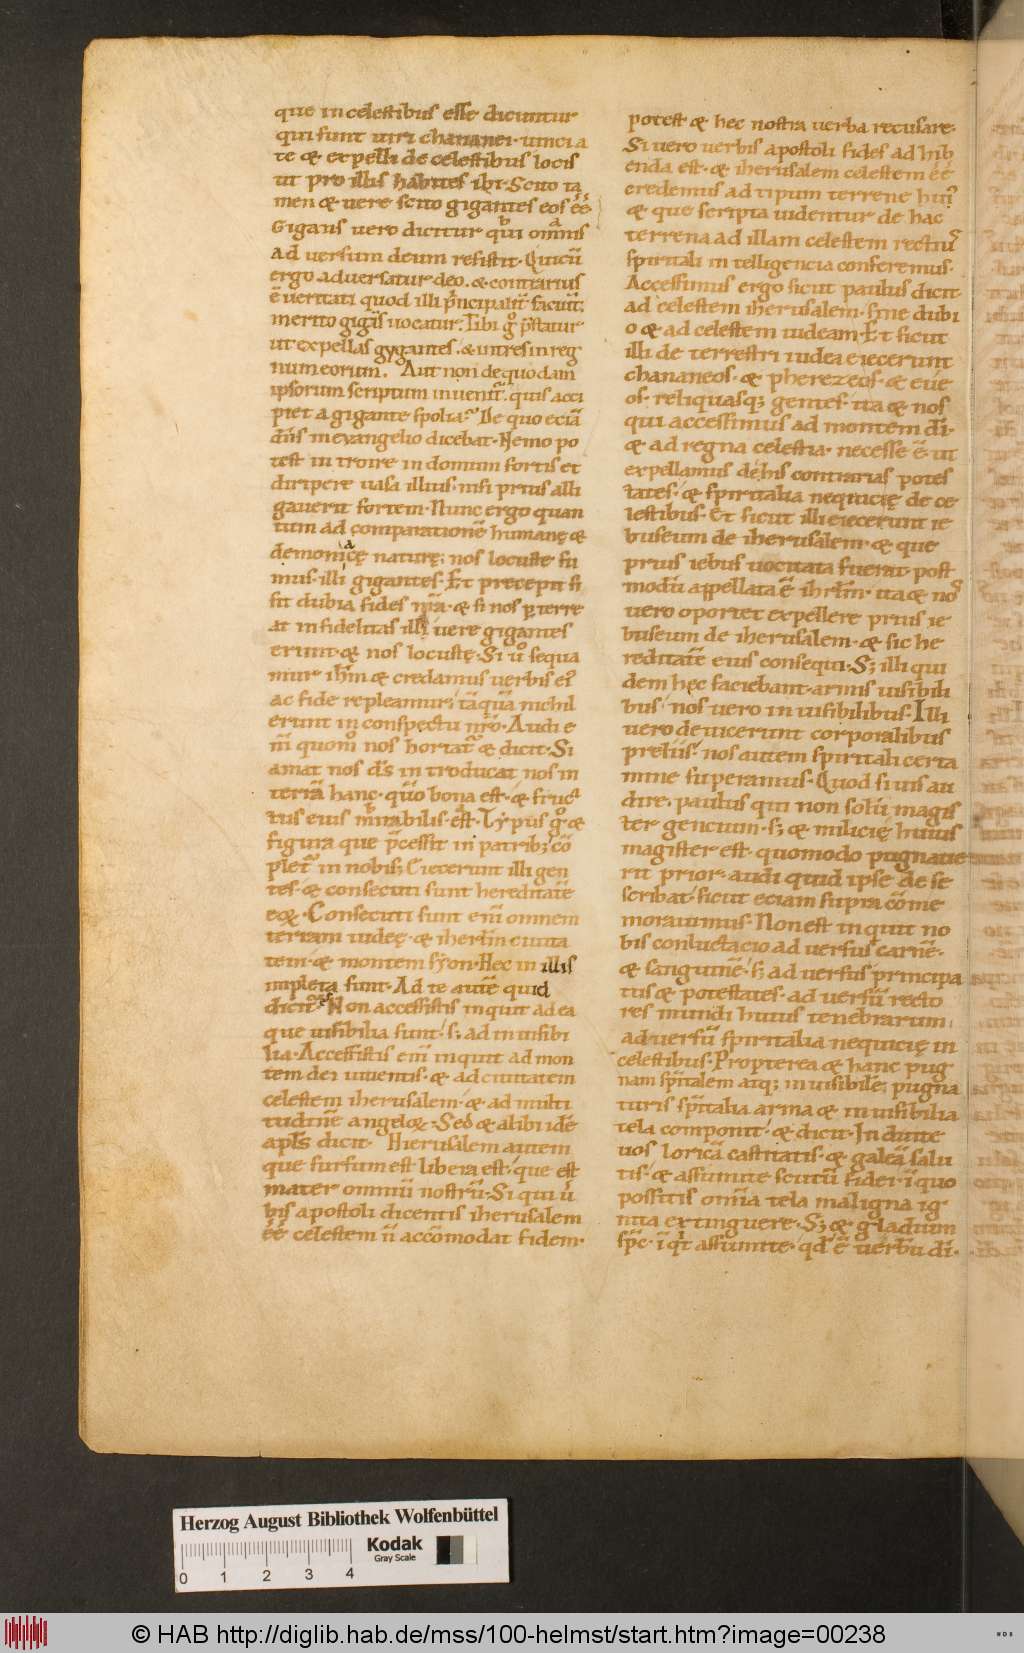 que in celestibus esse dicuntur
qui sunt uiri chananei· uincia
te & expelli de celestibus locis
ut pro illis habites ibi· Scito ta
men & uere scito gigantes eos ee͂
Gigans uero dicitur qui omnis
ad uersum deum resistit· Quicū
ergo aduersatur deo· & contrarius
ē ueritati quod illi pͥncipalit̄ faciūt·
merito gigās uocatur· Tibi gͦ p̄statur
ut expellas gygantes· & intres in reg
num eorum. Aut non de quodam
ipsorum scriptum inuenit̄· quis acci
piet a gigante spolia? De quo eciā
dn̄s in evangelio dicebat· Nemo po
test in troire in domum fortis et
diripere uasa illius· nisi prius alli
gauerit fortem· Nunc ergo quan
tum ad comparationē humanę &
demonicę naturę; nos locuste su
mus· illi gigantes· Et precepit si
sit dubia fides nr̄a· & si nos ꝑ terre
at infidelitas illi uere gigantes
erunt· & nos locustę· Si uͦ sequa
mur ih̄m & credamus uerbis ei᾿
ac fide repleamur; tā quā nichil
erunt in conspectu nr̄o· Audi e
nī quomͦ nos hortat᾿ & dicit· Si
amat nos dn̄s in troducat nos in
terrā hanc· quō bona est· & fruc
tus eius mirabilis· est· Typus gͦ &
figura que p̄cessit in patrib; cō
plet᾿ in nobis; Eiecerunt illi gen
tes· & consecuti sunt hereditatē
eoꝝ· Consecuti sunt enī omnem
terram iudeę· & iherl̄m ciuita
tem· & montem syon· Hec in illis
impleta sunt· Ad te autē quid
dicit᾿ Non accessistis inquit ad ea
que uisibilia sunt· s; ad in uisibi
lia· Accessistis enī inquit ad mon
tem dei uiuentis· & ad ciuitatem
celestem iherusalem· & ad multi
tudinē angeloꝝ· Sed & alibi idē
apl̄s dicit· Hierusalem autem
que sursum est libera est· que est
mater omniū nostrū· Si qui ū
bis apostoli dicentis iherusalem
ee͂ celestem n̄ accōmodat fidem·
potest & hec nostra uerba recusare·
Si uero uerbis apostoli fides ad hib
enda est· & iherusalem celestem ee͂
credemus ad tipum terrene hui᾿
& que scripta uidentur de hac
terrena ad illam celestem rectiu᾿
spiritali in telligencia conferemus·
Accessimus ergo sicut paulus dicit·
ad celestem iherusalem· sine dubi
o & ad celestem iudeam· Et sicut
illi de terrestri iudea eiecerunt
chananeos· & pherezeos· & eue
os· reliquasq; gentes· ita & nos
qui accessimus ad montem dī·
& ad regna celestia· necesse ē ut
expellamus de his contrarias potes
tates· & spiritalia nequicię de ce
lestibus· Et sicut illi eiecerunt ie
buseum de iherusalem· & que
prius iebus uocitata fuerat· post
modū appellata ē ihrl̄m· ita & no᾿
uero oportet expellere prius ie
buseum de iherusalem· & sic he
reditatē eius consequi· S; illi qui
dem hec faciebant· armis uisibili
bus· nos uero in uisibilibus· Illi
uero deuicerunt corporalibus
preliis· nos autem spiritali certa
mine superamus· Quod si uis au
dire· paulus qui non solū magis
ter gencium· s; & milicię huius
magister est· quomodo pugnaue
rit prior· audi quid ipse de se
scribat· sicut eciam supra cōme
morauimus· Non est inquit no
bis conluctacio ad uersus carnē·
& sanguinē· s; ad uersus principa
tus & potestates· ad uersū recto
res mundi huius tenebrarum·
ad uersū spiritalia nequicię in
celestibus· Propterea & hanc pug
nam spīritalem atq; in uisibilē; pugna
turis spīritalia arma & in uisibilia
tela componit· & dicit· Induite
uos loricā castitatis· & galeā salu
tis· & assumite scutū fidei· ī quo
possitis omīa tela maligna ig
nita extinguere· S; & gladium
spc̄· īqt̄ assumite· qd̄ ē uerbū dī·
Herzog August Bibliothek Wolfenbüttel
0 1 2 3 4
Kodak
Gray Scale
© HAB http://diglib.hab.de/mss/100-helmst/start.htm?image=00238